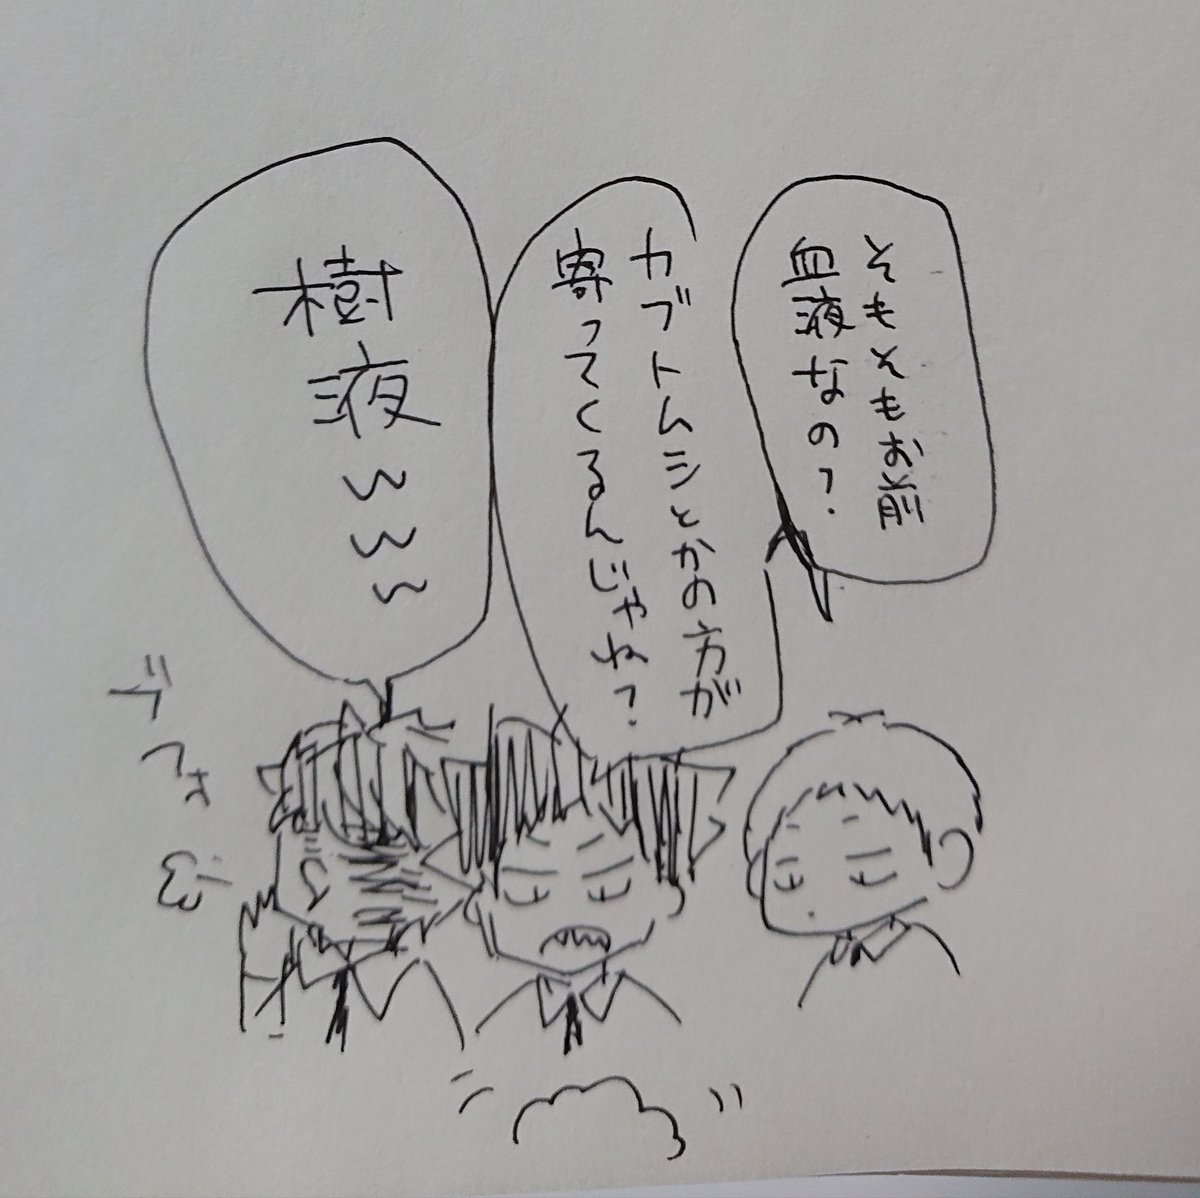 そもそもお前
血液なの?
カブトムシとかの方が
寄ってくるんじゃね?
樹液www